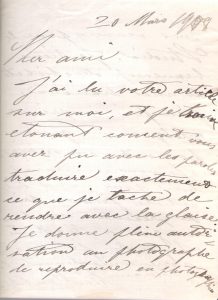 20 Mars 1908
Cher ami
J'ai lu votre article
sur moi, et je trouve
etonant coment vous
avez pu avec les paroles
traduire exactement
ce que je tache de
rendre avec la glaise
Je donne pleine autori-
sation au photographe
de reproduire en photographie